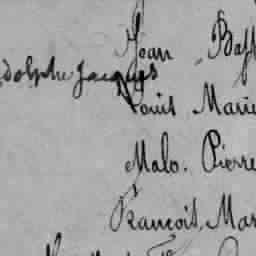 Jean Bap
Adolphe Jacques
Louis Marie
Malo. Pierre
François, Mar